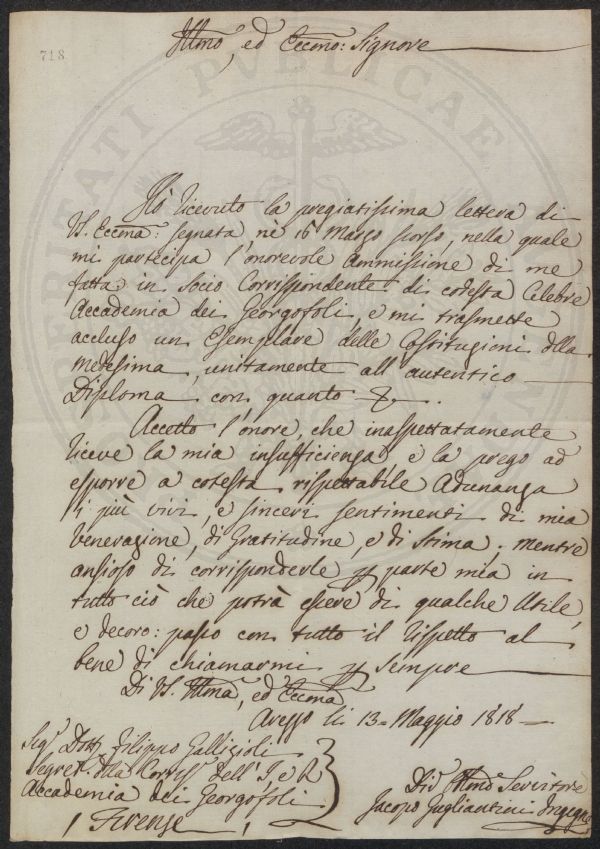 718
Illmo, ed Eccmo: Signore
Hò ricevuto la pregiatissima lettera di
V. S. Eccma: segnata nè 16 Marzo scorso, nella quale
mi partecipa l'onorevole Ammissione di me
fatta in Socio Corrispondente di cotesta Celebre
Accademia dei Georgofoli, e mi trasmette
accluso un Esemplare delle Costituzioni della
Medesima, unitamente all'autentico
Diploma con quanto &.
Accetto l'onore, che inaspettatamente
riceve la mia insufficienza e la prego ad
esporre a cotesta rispettabile Adunanza
i più vivi, e sinceri sentimenti di mia
Venerazione, di Gratitudine, e di Stima; mentre
ansioso di corrisponderle p parte mia in
tutto ciò che potrà essere di qualche Utile,
e decoro: passo con tutto il rispetto al
bene di chiamarmi p sempre
Di V. S. Illma, ed Eccma
Arezzo li 13 = Maggio 1818 =
Sigr Dott Filippo Gallizioli
Segret. della Corriss dell' I e R
Accademia dei Georgofoli
/ Firenze /
Illmo Servitore
Jacopo Gugliantini Ingegne
PROSPERITATI PUBLICAE